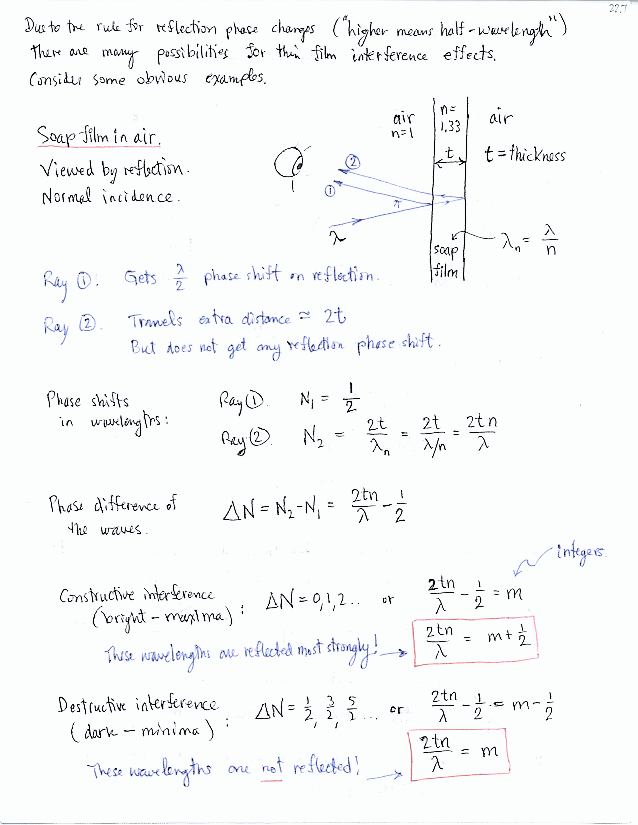 22.7
Due to the rule for reflection phase changes ("higher means half-wavelength")
there are many possibilities for thin film interference effects.
Consider some obvious examples.
Soap film in air.
Viewed by reflection.
Normal incidence.
air n= air
n=1 1.33
t t = thickness
②
①
π
λ
soap
film
λn = λ/n
Ray ①: Gets λ/2 phase shift on reflection.
Ray ②. Travels extra distance ≈ 2t
But does not get any reflection phase shift.
Phase shifts
in wavelengths:
Ray ①. N₁ = 1/2
Ray ②. N₂ = 2t/λn = 2t/λ/n = 2tn/λ
Phase difference of
the waves.
ΔN = N₂-N₁ = 2tn/λ - 1/2
integers.
Constructive interference
(bright - maxima) :
ΔN = 0,1,2.. or 2tn/λ - 1/2 = m
These wavelengths are reflected most strongly! → 2tn/λ = m + 1/2
Destructive interference
(dark - minima) :
ΔN = 1/2, 3/2, 5/2 ... or 2tn/λ - 1/2 = m - 1/2
These wavelengths are not reflected! → 2tn/λ = m